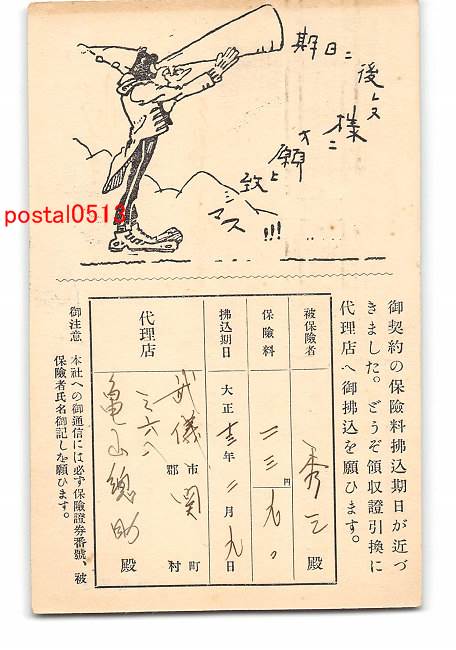 期日ニ
後レヌ
様ニ
オ願
ヒ致
シマス
!!!
postal0513
御契約の保険料拂込期日が近づ
きました。どうぞ領収證引換に
代理店へ御拂込を願ひます。
被保險者 秀三 殿
保險料 二三円九〇
拂込期日 大正十三年二月九日
代理店
武儀郡市関町村
亀山總助 殿
御注意 本社への御通信には必ず保險證券番號、被
保險者氏名御記しを願ひます。